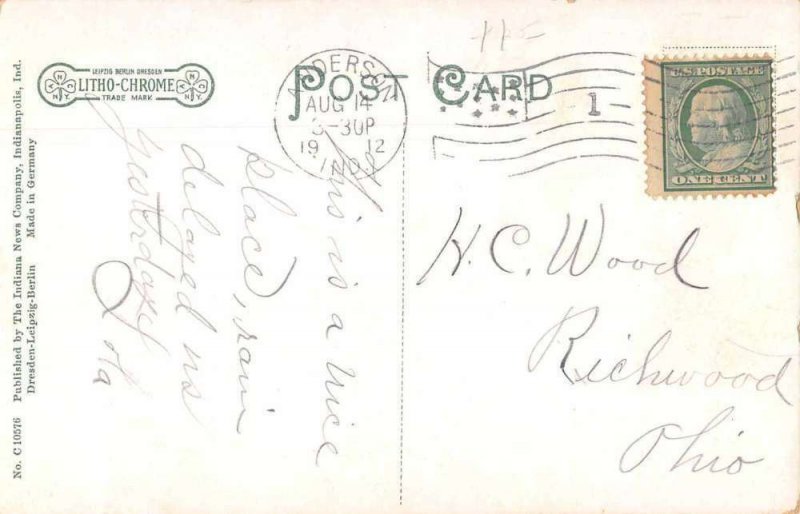 No. C 10576 Published by The Indiana News Company, Indianapolis, Ind.
Dresden-Leipzig-Berlin Made in Germany
LEIPZIG BERLIN DRESDEN
LITHO-CHROME
TRADE MARK
POST CARD
ANDERSON
AUG 14
3-30P
19 12
IND.
1
U.S. POSTAGE
ONE CENT
This is a nice
place, rain
delayed us
yesterday
Lota
H. C. Wood
Richwood
Ohio